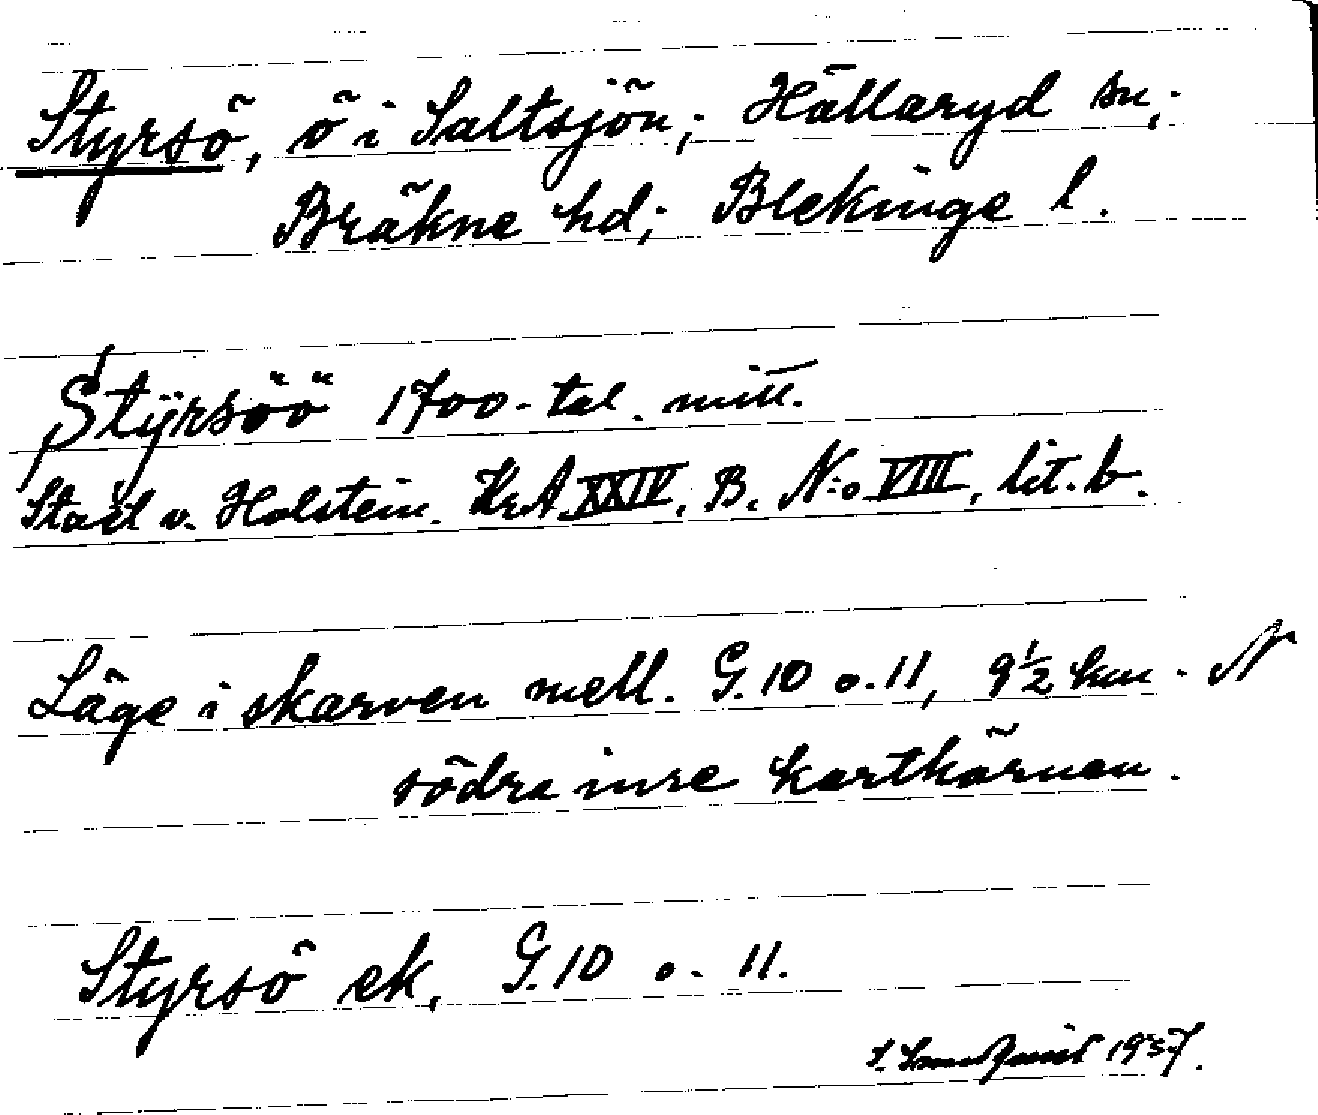 Styrsö, ö i Saltsjön; Hällaryd sn;
Bräkne hd; Blekinge l.
Stÿrsöö 1700-tal. mitt.
Stael v. Holstein. KrA XXIV, B. N:o VIII, lit. b.
Läge i skarven mell. G.10 o. 11, 9½ km. N
södra inre kartkärnan.
Styrsö ek, G.10 o. 11.
1957.